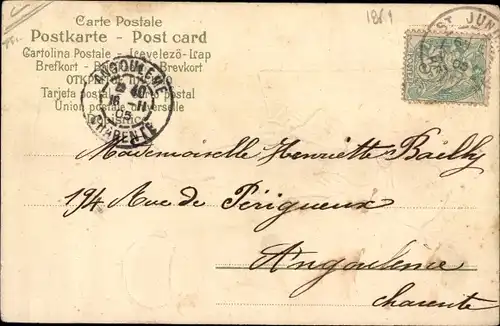 1861
Carte Postale
Postkarte - Post card
Cartolina Postale - Levelező-Lap
Brefkort - Brevkort
Tarjeta postal postal
Union postale universelle
ANGOULEME
40
16 - 11
05
CHARENTE
ST JUN
05
Mademoiselle Henriette Bailly
194 Rue de Périgueux
Angoulême
charente